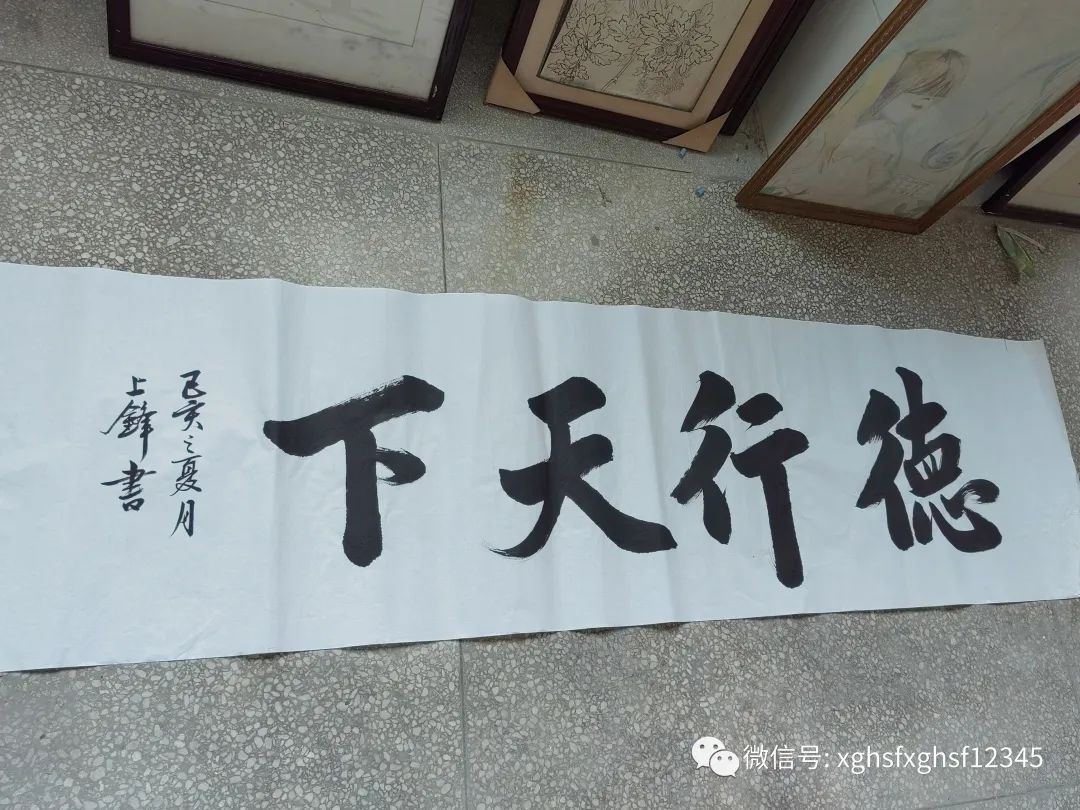 德行天下
己亥之夏月
上鋒書
微信号: xghsfxghsf12345